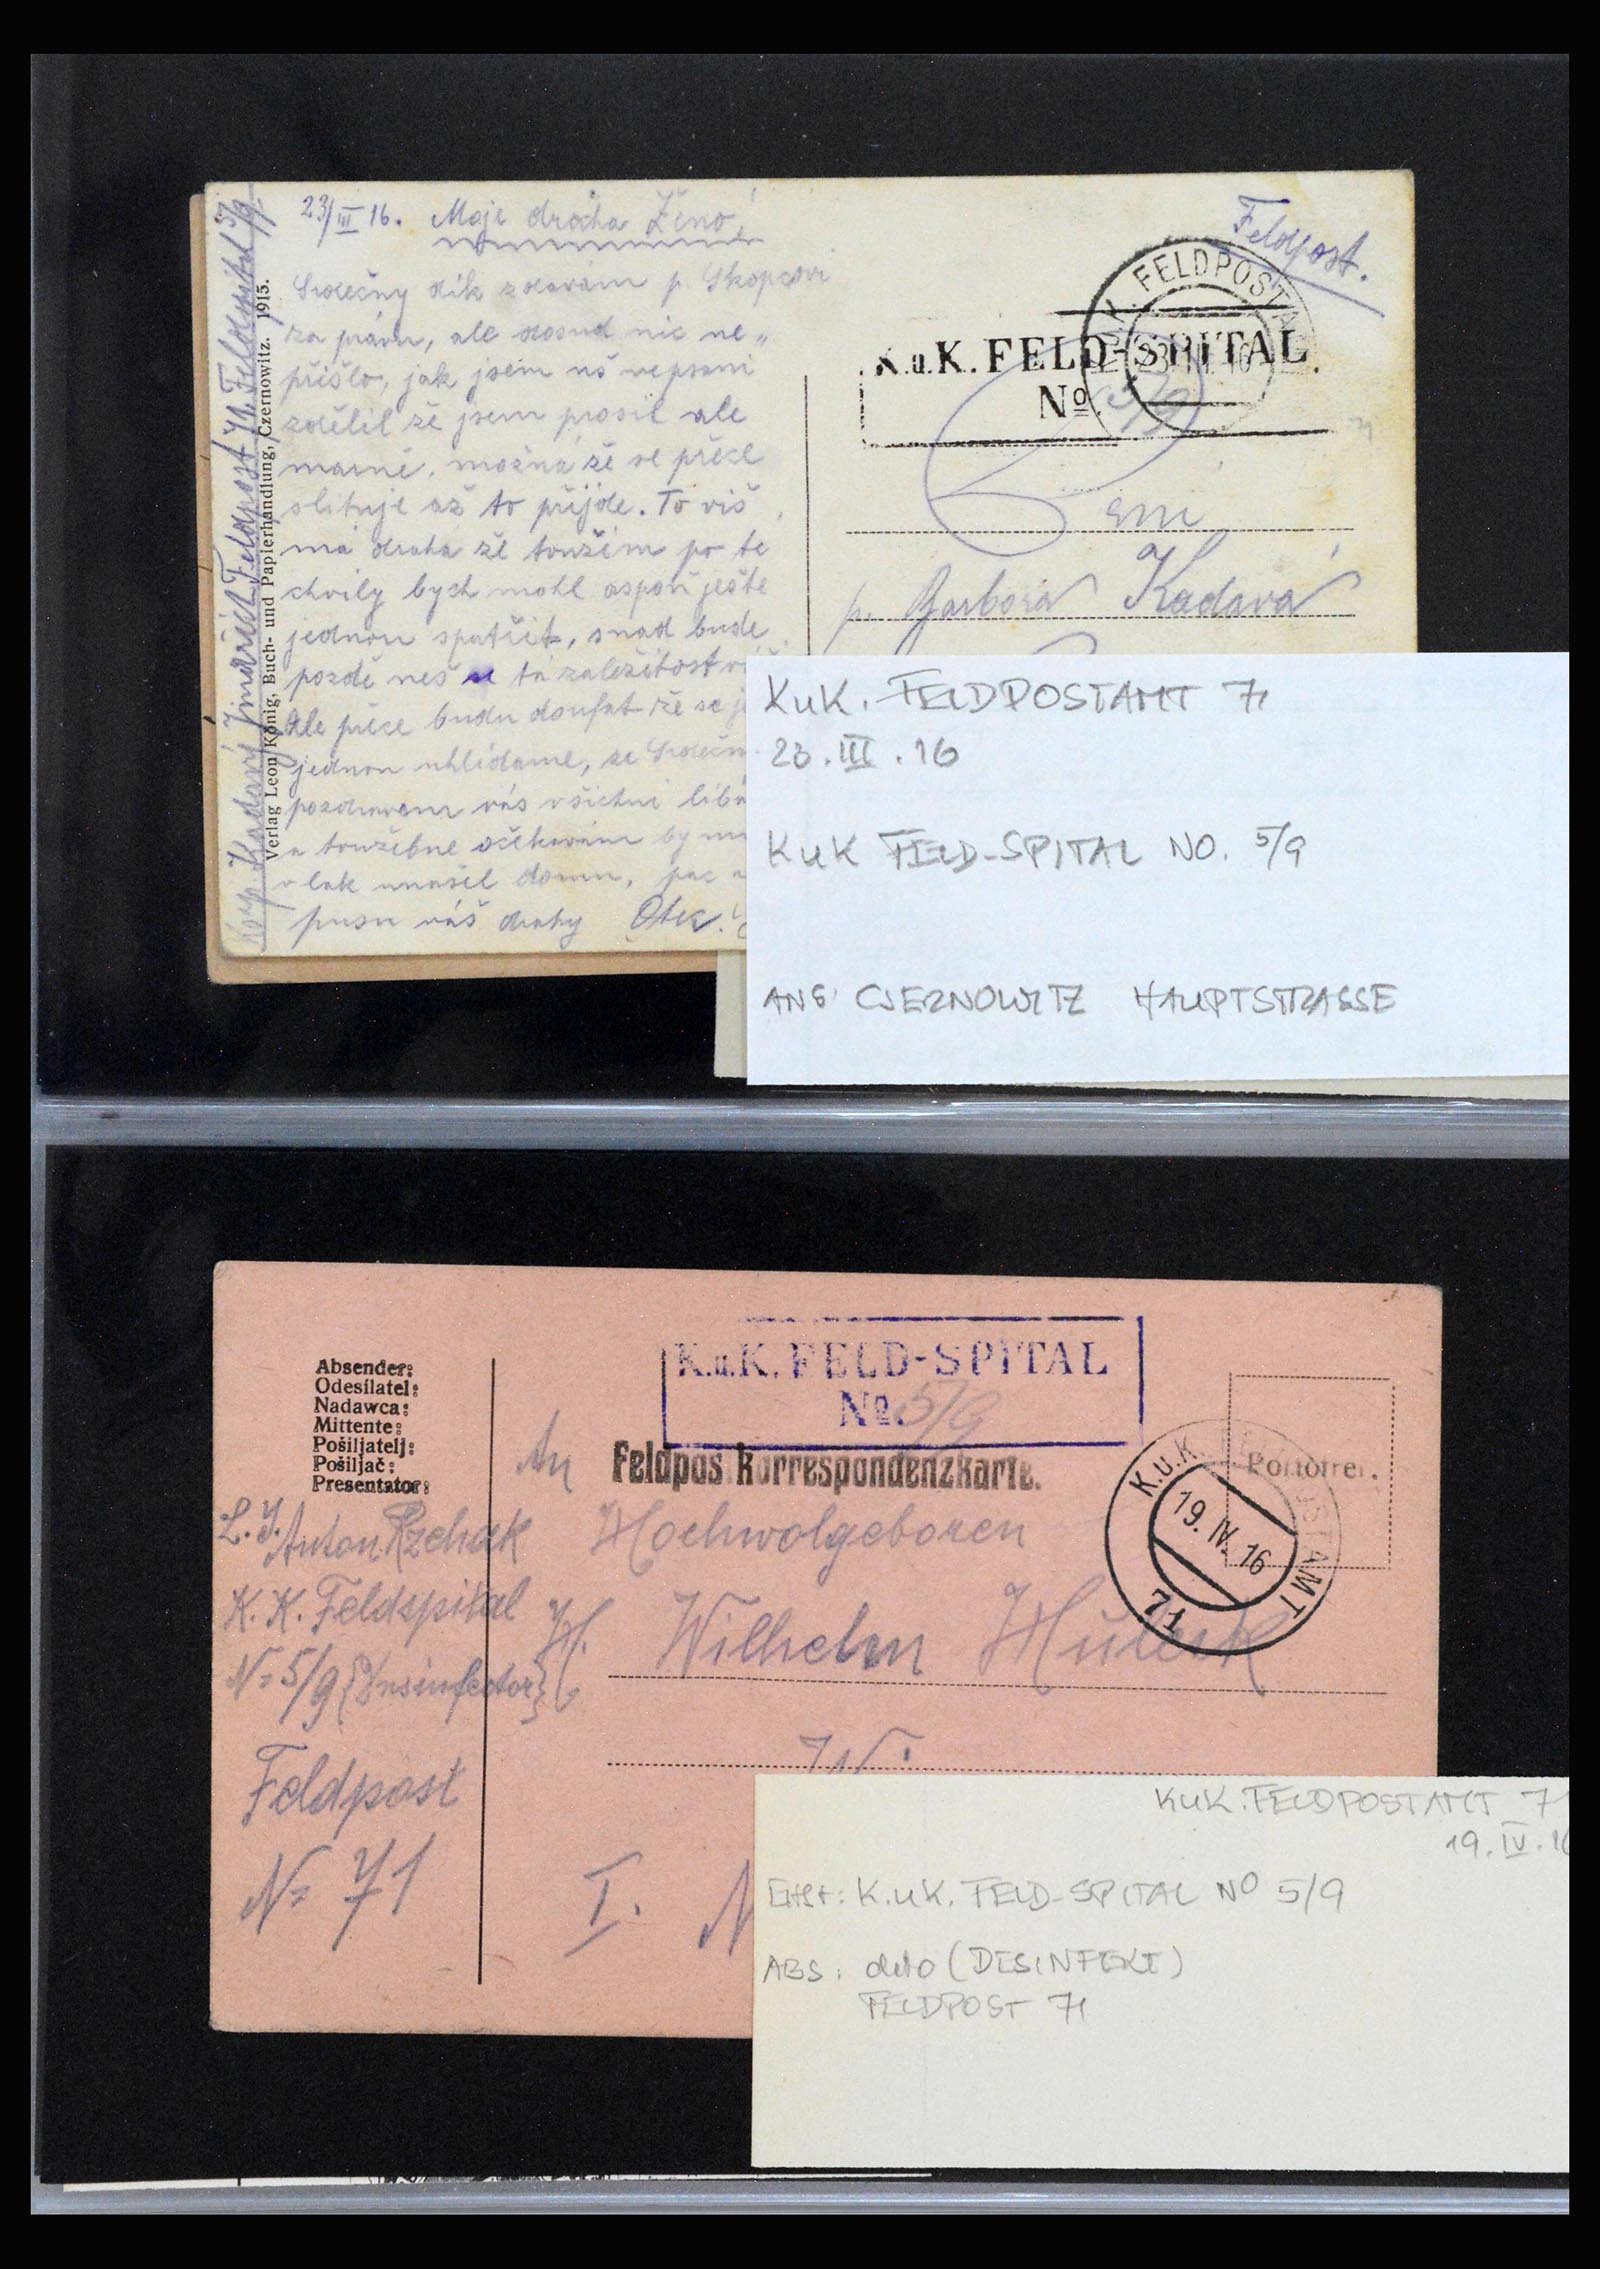 23/III 16. Moje drahá Ženo!
Srdečný dík zdavám p. Skopcovi
za práni, ale dosud nic ne„
přišlo, jak jsem uš vepsani
zdělil že jsem prosil ale
marně. možná že se přece
slituje až to přijde. To viš
má drahá že toužim po te
chvíly bych mohl aspoň ješte
jednou spatřit, snad bude
pozdě neš se ta zaležitost
Ale přece budu doufat že se
jednou uhlidame, se Srdečn
pozdravem vás všichni libá
a toužebne očekavám by
vlak unašel domu, pac a
pusu váš drahy Otec!
Korp. Kadavý Feldpost 71. Feldspital 5/9.
Verlag Leon König, Buch- und Papierhandlung, Czernowitz. 1915.
Feldpost.
FELDPOSTA
K.u.K. FELD-SPITAL
No. 5/9
23. III. 16
p. Barbora Kadavá
KUK. FELDPOSTAMT 71
23.III.16
KUK FELD-SPITAL NO. 5/9
ANS: CZERNOWITZ HAUPTSTRASSE
K.u.K. FELD-SPITAL
No. 5/9
Absender:
Odesílatel:
Nadawca:
Mittente:
Pošiljatelj:
Pošiljač:
Presentator:
An Feldpost Korrespondenzkarte.
Portofrei.
K.u.K. FELDPOSTAMT
19. IV. 16
71
L. I. Anton Rzehak
K. K. Feldspital
No 5/9 {Dusinfector}
Feldpost
No 71
Hochwolgeboren
H. Wilhelm
I. N
KUK. FELDPOSTAMT 71
19.IV.16
K.u.K. FELD-SPITAL NO 5/9
ABS: deto (DESINFEKT)
FELDPOST 71